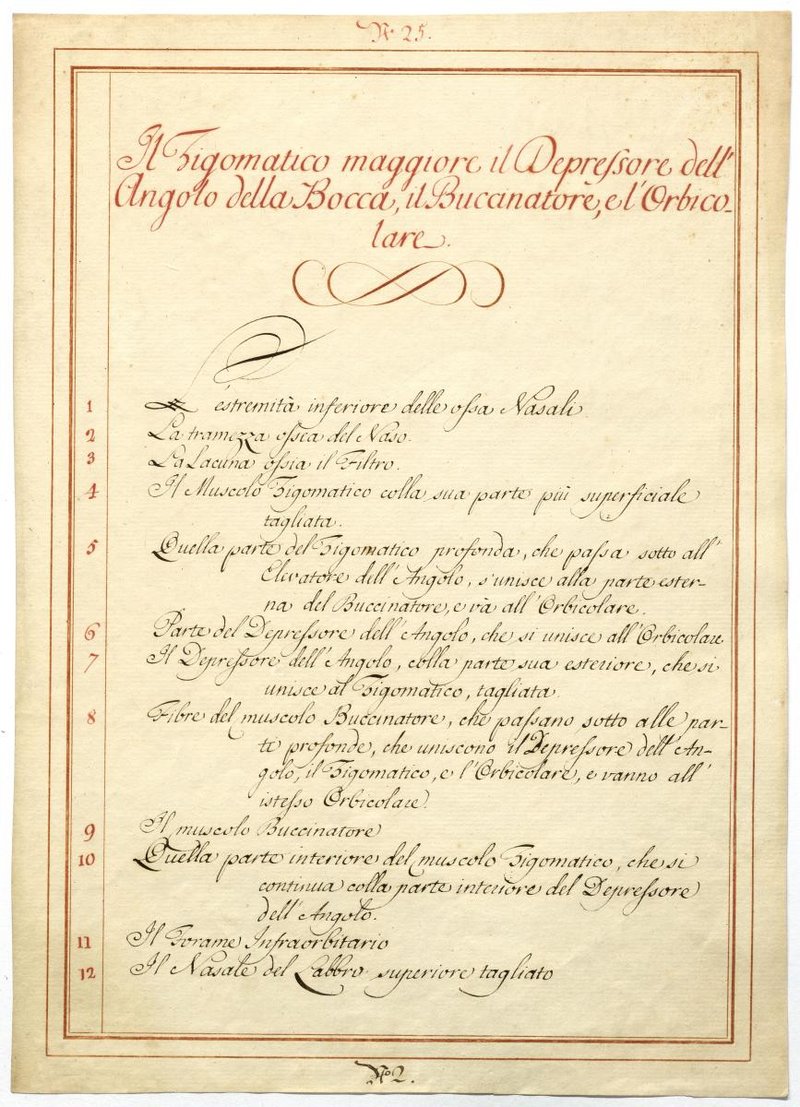 No. 25.
Il Zigomatico maggiore il Depressore dell'
Angolo della Bocca, il Buccinatore, e l'Orbico-
lare.
1 L'estremità inferiore delle ossa Nasali
2 La tramezza ossea del Naso.
3 La Lacuna ossia il Filtro.
4 Il Muscolo Zigomatico colla sua parte più superficiale
tagliata.
5 Quella parte del Zigomatico profonda, che passa sotto all'
Elevatore dell'Angolo, s'unisce alla parte ester-
na del Buccinatore, e và all'Orbicolare.
6 Parte del Depressore dell'Angolo, che si unisce all'Orbicolare
7 Il Depressore dell'Angolo, colla parte sua esteriore, che si
unisce al Zigomatico, tagliata.
8 Fibre del muscolo Buccinatore, che passano sotto alle par-
ti profonde, che uniscono il Depressore dell'An-
golo, il Zigomatico, e l'Orbicolare, e vanno all'
istesso Orbicolare.
9 Il muscolo Buccinatore
10 Quella parte interiore del muscolo Zigomatico, che si
continua colla parte interiore del Depressore
dell'Angolo.
11 Il Forame Infraorbitario
12 Il Nasale del Labbro superiore tagliato
No 2.